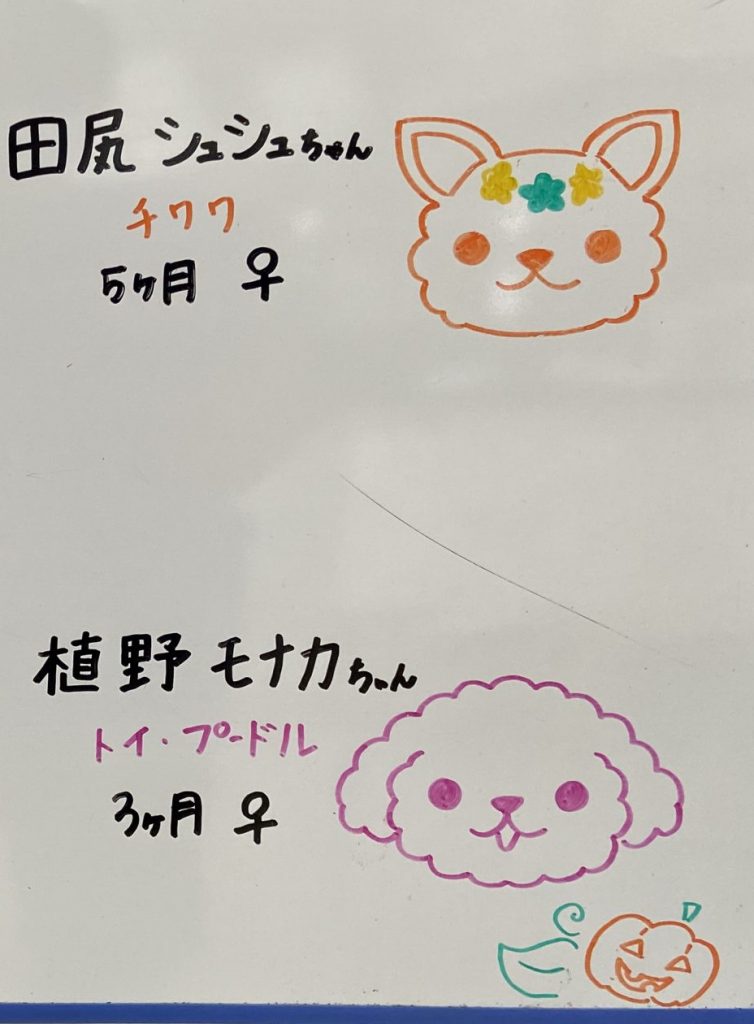 田尻 シュシュちゃん
チワワ
5ヶ月 ♀
植野 モナカちゃん
トイ・プードル
3ヶ月 ♀